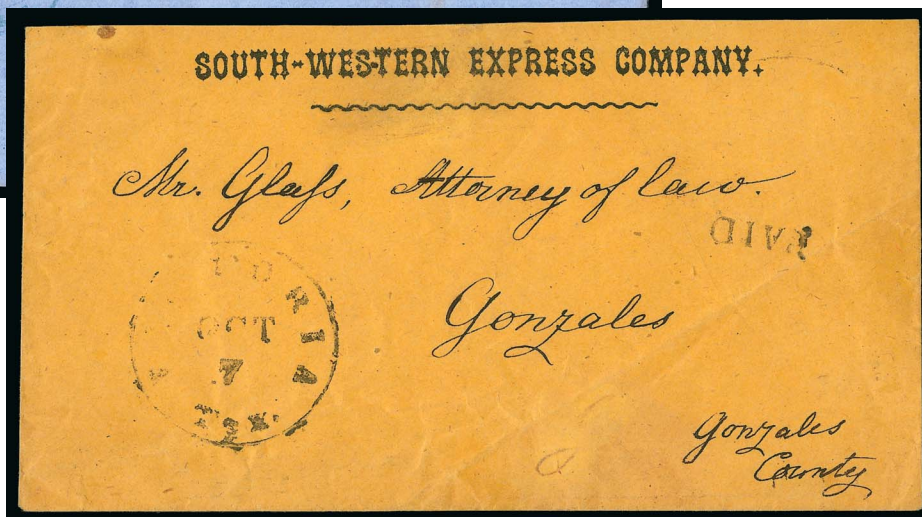 SOUTH-WESTERN EXPRESS COMPANY.
Mr. Glass, Attorney of law.
PAID
OCT
7
Gonzales
Gonzales
County